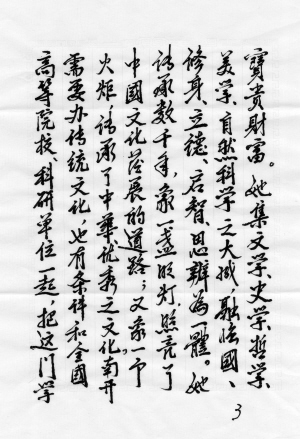 寶貴財富。她集文学、史学、哲学、
美学、自然科学之大成，融治國、
修身、立德、启智、思辨為一體。她
传承数千年，象一盏明灯，照亮了
中國文化发展的道路；又象一个
火炬，传承了中華优秀之文化。南开
需要办传统文化，也有条件和全國
高等院校、科研单位一起，把这门学
3